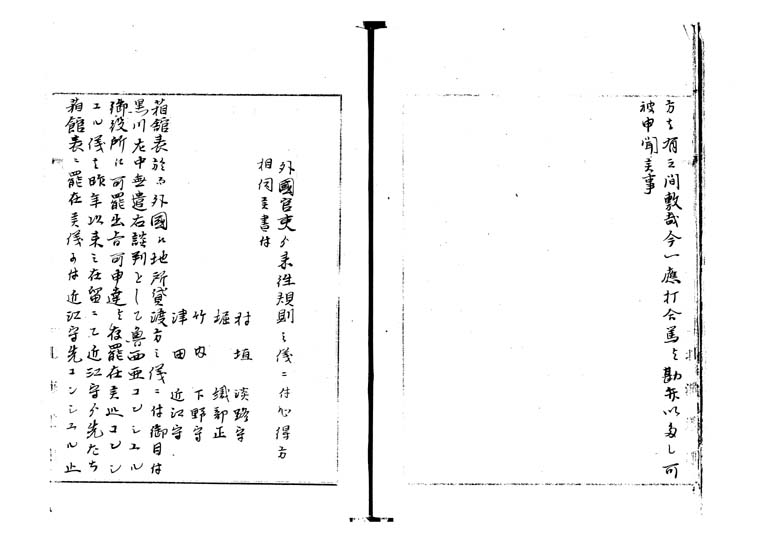 方も有之間敷哉今一應打合篤と勘弁いたし可
被申聞候事
外國官吏ゟ来往規則之儀ニ付心得方
相伺候書付
村垣淡路守
堀織部正
竹内下野守
津田近江守
箱舘表於而外國江地所貸渡方之儀ニ付御目付
黒川左中者遣右談判として魯西亜コンシユル
御役所江可罷出旨可申達と存罷在候処コンシ
ユル儀も昨年以来之在留ニ而近江守ゟ先たち
箱館表ニ罷在候儀ニ付近江守先コンシユル止